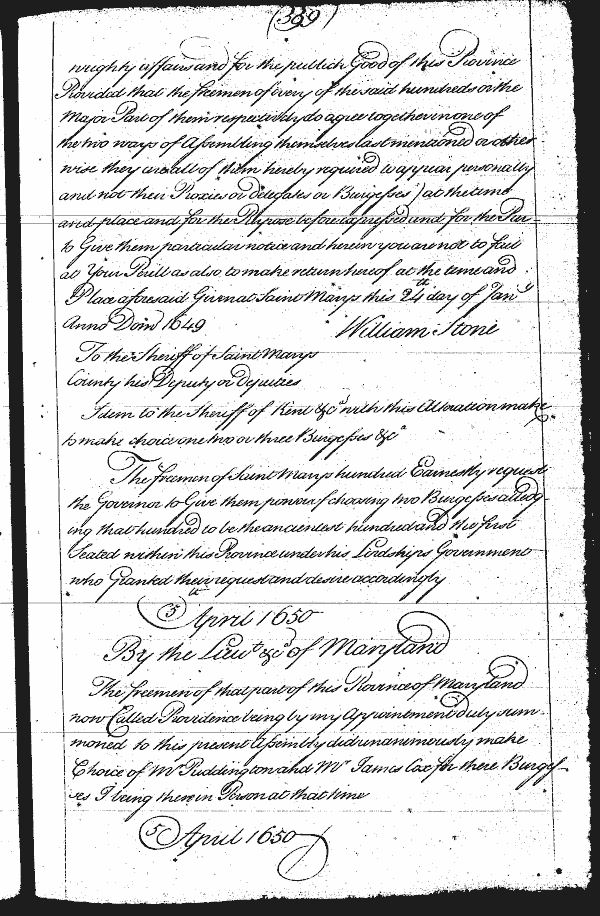 (389)
wrighty affairs and for the publick Good of this Province
Provided that the freemen of every of the said hundreds or the
Major Part of them respectively do agree together in one of
the two ways of Assembling themselves last mentioned or other
wise they are all of them hereby required to appear personally
and not their Proxies or delegates or Burgesses) at the time
and place and for the Purpose before aforesaid and for the Per-
to Give them particular notice and herein you are not to fail
at Your Perill as also to make return hereof at the time and
Place aforesaid Given at Saint Marys this 24th day of Jany
Anno Dom 1649 William Stone
To the Sheriff of Saint Marys
County his Deputy or deputies
Idem to the Sheriff of Kent &ca with this Alteration make
to make choice one two or three Burgesses &ca
The freemen of Saint Marys hundred Earnestly request
the Governor to Give them power of choosing two Burgesses alledg-
ing that hundred to be the ancientest hundred and the first
Seated within this Province under his Lordships Government
who Granted their request and desire accordingly
5th April 1650
By the Lieut &ca of Maryland
The freemen of that part of this Province of Maryland
now Called Providence being by my Appointment duly sum-
moned to this present Assembly did unanimously make
Choice of Mr Puddington and Mr James Cox for there Burges-
ses I being there in Person at that time
5 April 1650